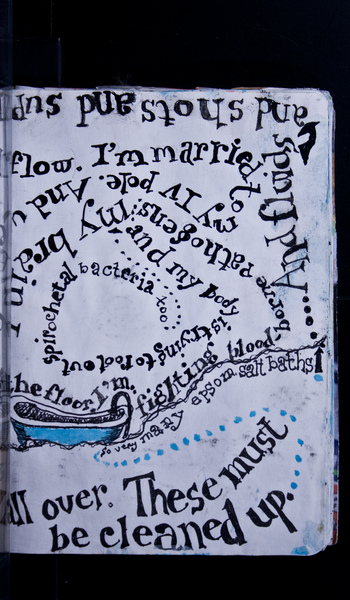 and shots and
And fluids....
flow. I'm married to
my IV pole. And
brain
the floor. I'm fighting blood
borne pathogens: my
and my body
is trying to root out
spirochetal bacteria too
so very many apsom salt baths
all over. These must
be cleaned up...